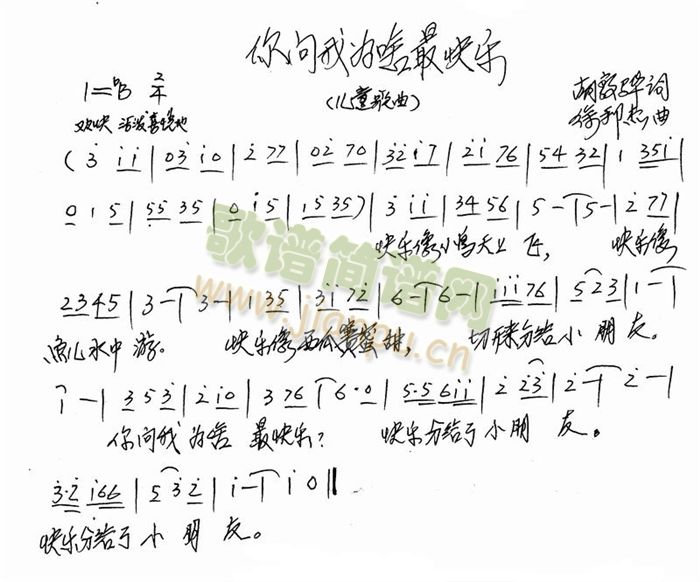 你问我为啥最快乐
(儿童歌曲)
1=bB 2/4
词
曲
欢快 活泼喜悦地
(3 i i | 0 3 i 0 | 2 7 7 | 0 2 7 0 | 3 2 i 7 | 2 i 7 6 | 5 4 3 2 | 1 3 5 i |
0 1 5 | 5 5 3 5 | 0 i 5 | 1 5 3 5) | 3 i i | 3 4 5 6 | 5 - | 5 - | 2 7 7 |
快乐像小鸟天上飞, 快乐像
2 3 4 5 | 3 - | 3 - | 1 3 5 | 3 i 7 2 | 6 - | 6 - | i i i 7 6 | 5 2 3 | 1 - |
鱼儿水中游。 快乐像西瓜 蜜甜, 切开来分给小朋友。
1 - | 3 5 3 | 2 i 0 | 3 7 6 | 6 · 0 | 5 · 5 6 i i | 2 2 3 | 2 - | 2 - |
你问我为啥最快乐? 快乐分给了小朋友。
3 · 2 i 6 6 | 5 3 2 | i - | i 0 ‖
快乐分给了小朋友。
歌谱简谱网
www.jianpu.cn